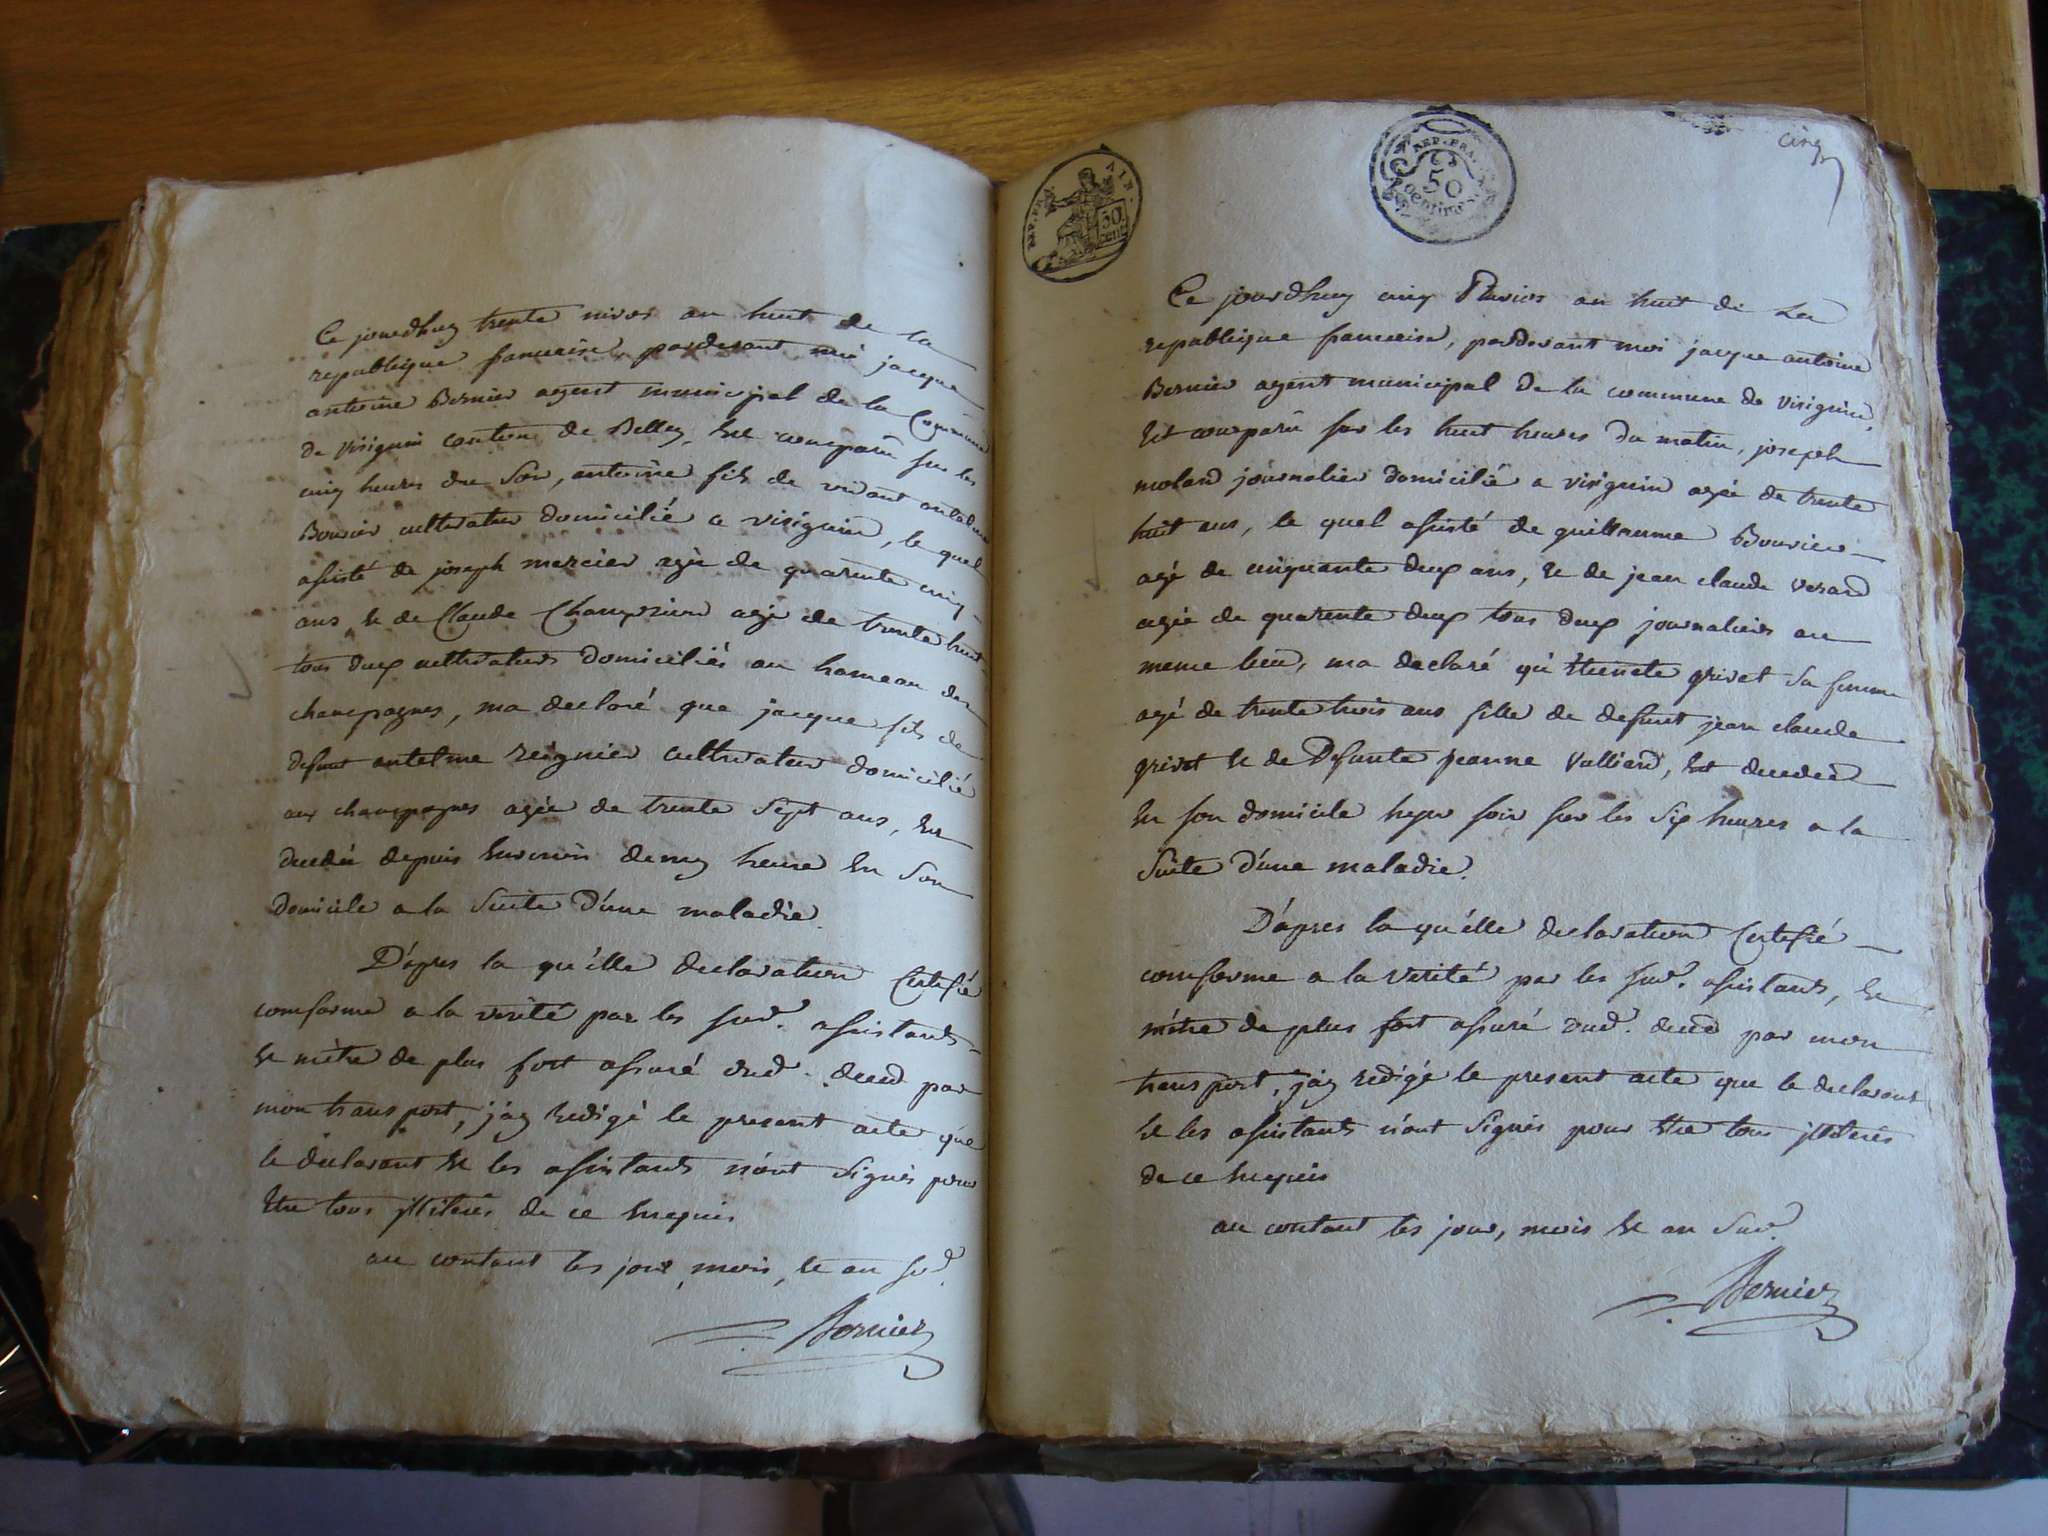 Ce jourdhuy trente nivos an huit de la
republique francaise, pardevant moi jacque
antoine Bernier agent municipal de la Commune
de virignin canton de Belley, est comparu sur les
cinq heures du soir, antoine fils de vivant antelme
Bouvier cultivateur domicilié a virignin, le quel
assisté de joseph mercier agée de quarente cinq
ans et de Claude Champrion agé de trente huit
tous deux cultivateurs domiciliés au hameau des
champagnes, ma declaré que jacque fils de
defunt antelme reignier cultivateur domicilié
aux champagnes agée de trente sept ans, est
decedée depuis environ demy heure en son
domicile a la suite d'une maladie.
D'apres la qu'elle declaration Certifié
conforme a la verité par les sud. assistants
et m'etre de plus fort assuré dud. deced par
mon transport, j'ay redigé le present acte que
le declarant et les assistants n'ont signés pour
etre tous illiterés de ce enquis
au contant les jour, mois, et an sud.
Bernier
REP. FRA.
AIN.
50 CENT.
REP. FRA.
50 centimes
cinq
Ce jourdhuy cinq Pluvios an huit de La
republique francaise, pardevant moi jacque antoine
Bernier agent municipal de la commune de virignin,
est comparu sur les huit heures du matin, joseph
molard journalier domicilié a virignin agée de trente
huit ans, le quel assisté de guillaume Bouvier
agé de cinquante deux ans, et de jean claude verard
agée de quarente deux tous deux journaliers au
meme lieu, ma declaré qu'etiennete grivet sa femme
agé de trente trois ans fille de defunt jean claude
grivet et de Defunte jeanne Vulliard, est decedeé
en son domicile hyer soir sur les six heures a la
suite d'une maladie.
D'apres la qu'elle declaration Certifié
conforme a la verité par les sud. assistants, et
m'etre de plus fort assuré dud. deced par mon
transport, j'ay redigé le present acte que le declarant
et les assistants n'ont signés pour etre tous illiterés
de ce enquis
au contant les jour, mois et an sud.
Bernier